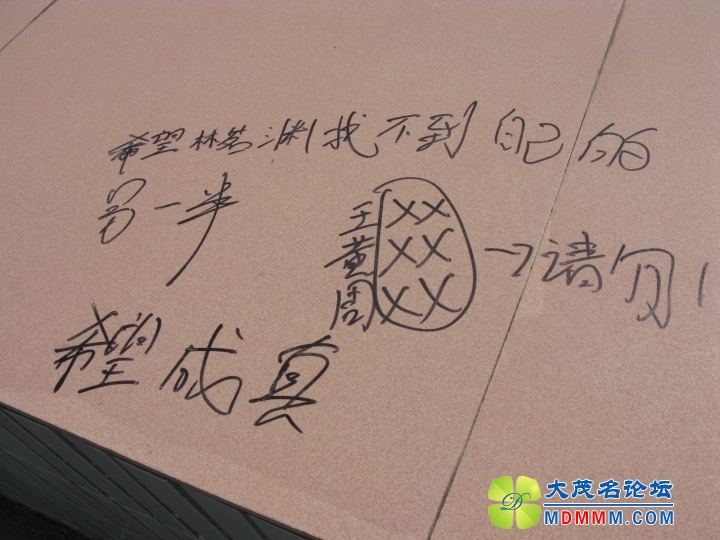 希望林茗渊找不到自己的
另一半
王XX
黄XX
周XX
→请勿
希望成真
大茂名论坛
MDMMM.COM